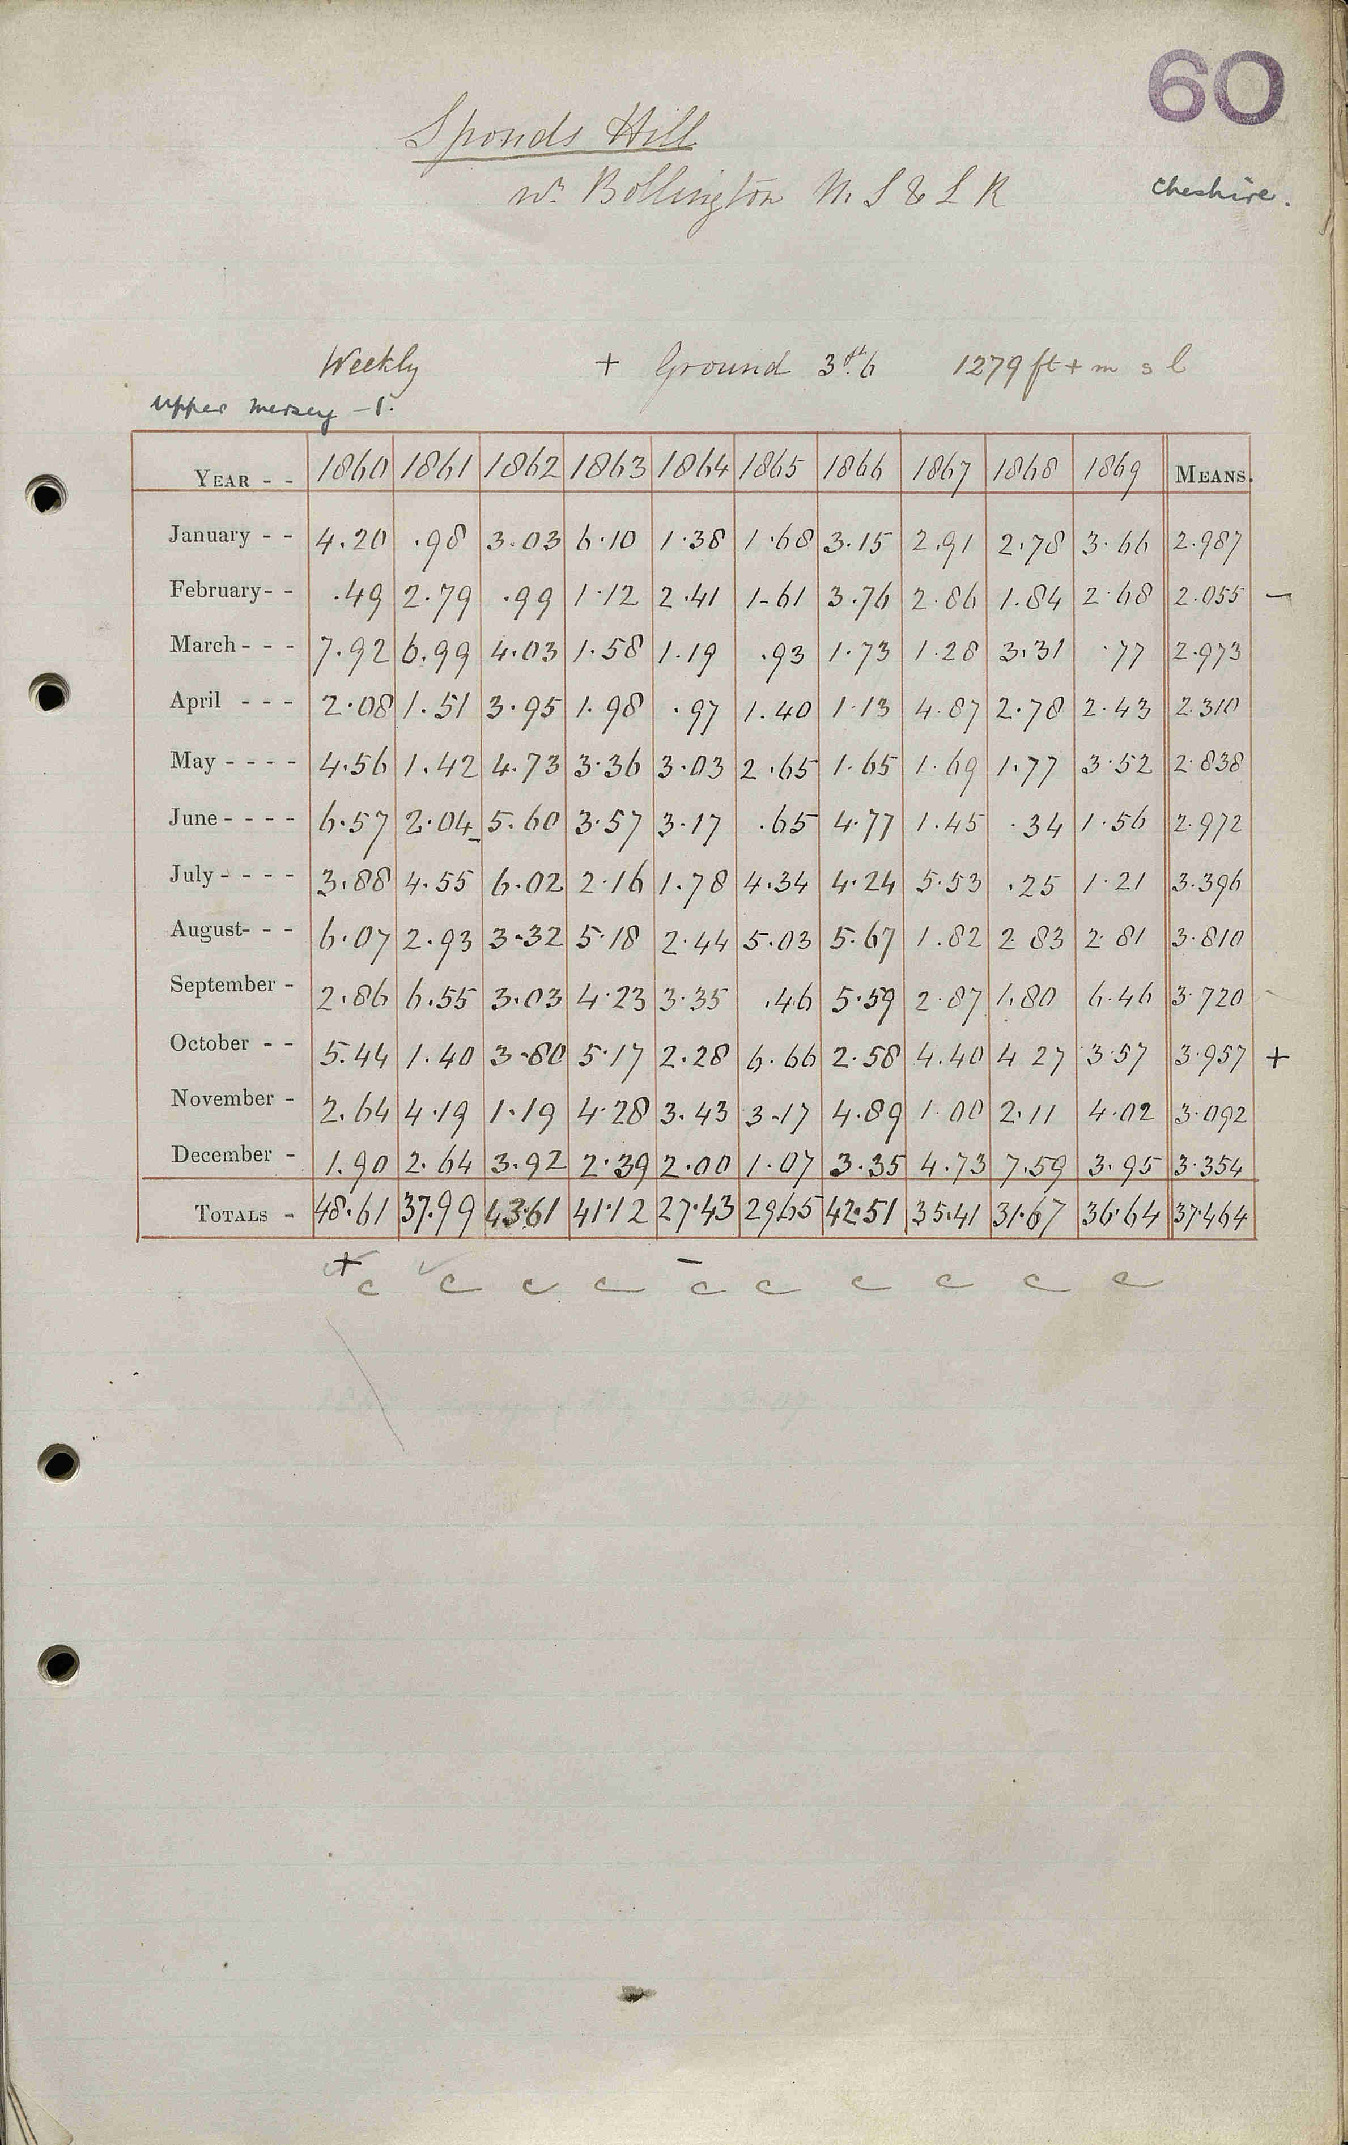 60
Sponds Hill
nr Bollington M. S & L R
Cheshire.
Weekly + Ground 3ft 6 1279 ft + m s l
Upper Mersey -
YEAR - - 1860 1861 1862 1863 1864 1865 1866 1867 1868 1869 MEANS.
January - - 4.20 .98 3.03 6.10 1.38 1.68 3.15 2.91 2.78 3.66 2.987
February - - .49 2.79 .99 1.12 2.41 1.61 3.76 2.86 1.84 2.68 2.055 -
March - - - 7.92 6.99 4.03 1.58 1.19 .93 1.73 1.28 3.31 .77 2.973
April - - - 2.08 1.51 3.95 1.98 .97 1.40 1.13 4.87 2.78 2.43 2.310
May - - - - 4.56 1.42 4.73 3.36 3.03 2.65 1.65 1.69 1.77 3.52 2.838
June - - - - 6.57 2.04 5.60 3.57 3.17 .65 4.77 1.45 .34 1.56 2.972
July - - - - 3.88 4.55 6.02 2.16 1.78 4.34 4.24 5.53 .25 1.21 3.396
August - - - 6.07 2.93 3.32 5.18 2.44 5.03 5.67 1.82 2.83 2.81 3.810
September - 2.86 6.55 3.03 4.23 3.35 .46 5.59 2.87 1.80 6.46 3.720
October - - 5.44 1.40 3.80 5.17 2.28 6.66 2.58 4.40 4.27 3.57 3.957 +
November - 2.64 4.19 1.19 4.28 3.43 3.17 4.89 1.00 2.11 4.02 3.092
December - 1.90 2.64 3.92 2.39 2.00 1.07 3.35 4.73 7.59 3.95 3.354
TOTALS - 48.61 37.99 43.61 41.12 27.43 29.65 42.51 35.41 31.67 36.64 37.464
+ -
c c c c c c c c c c